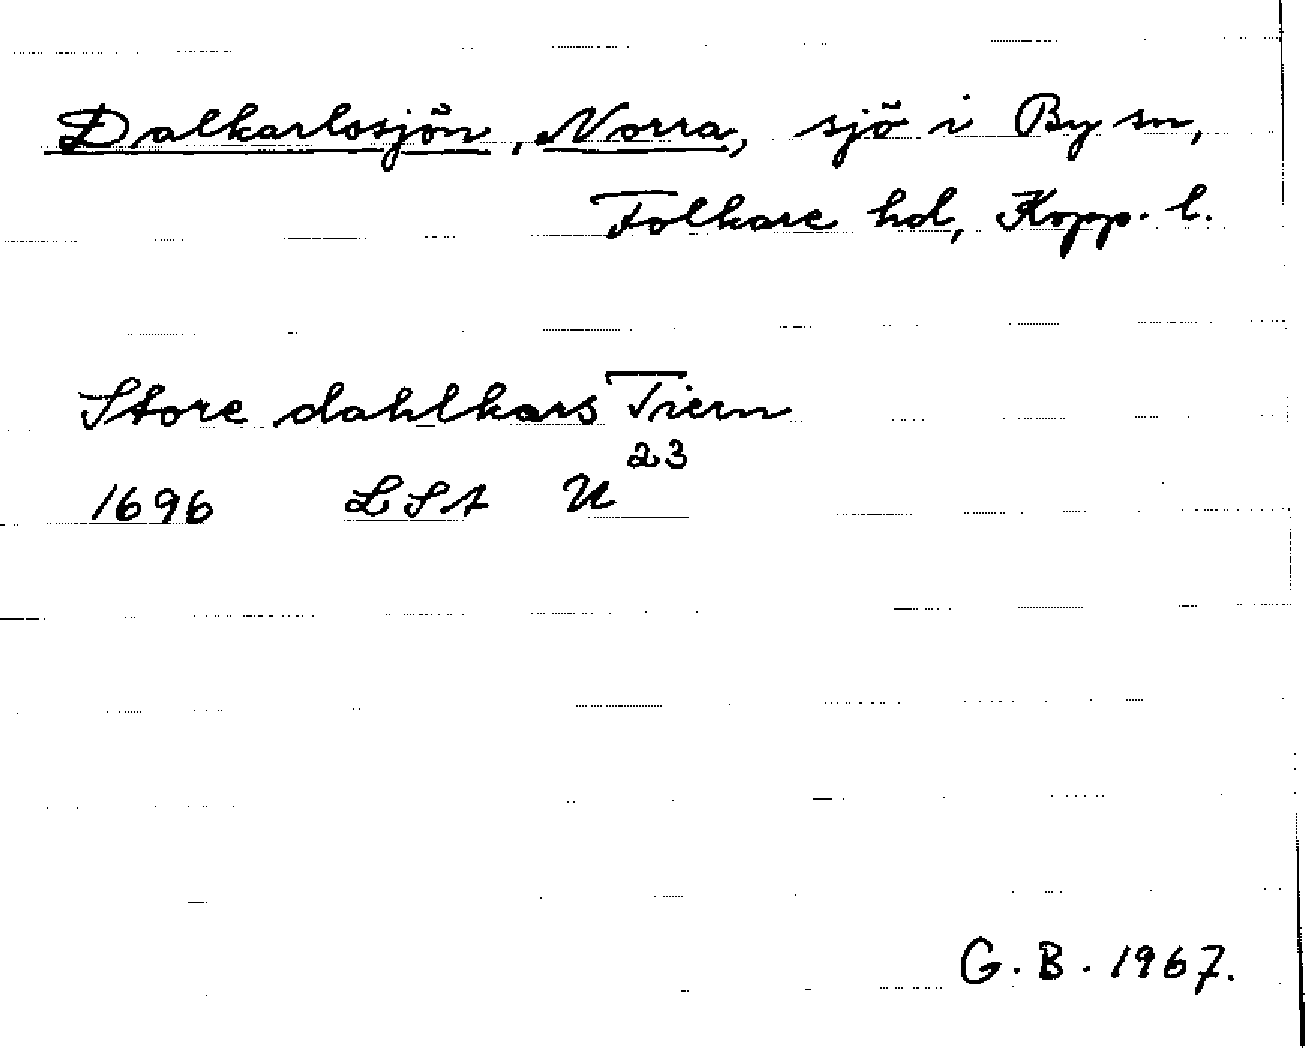 Dalkarlosjön, Norra, sjö i By sn,
Folkare hd, Kopp. l.
Store dahlkars Tiern
1696 LSA U 23
G. B. 1967.